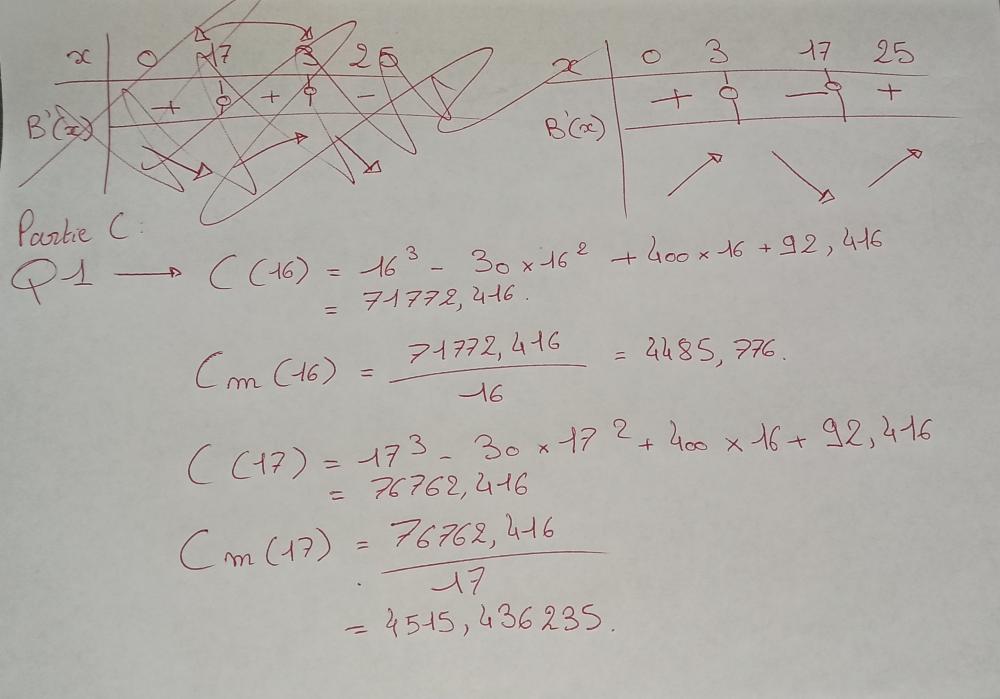 x 0 17 3 25
B'(x) + 0 + 0 -
x 0 3 17 25
B'(x) + 0 - 0 +
Partie C :
Q1 → C(16) = 16³ - 30 × 16² + 400 × 16 + 92,416
= 71772,416.
Cm(16) = 71772,416 / 16 = 4485,776.
C(17) = 17³ - 30 × 17² + 400 × 16 + 92,416
= 76762,416
Cm(17) = 76762,416 / 17
= 4515,436235.